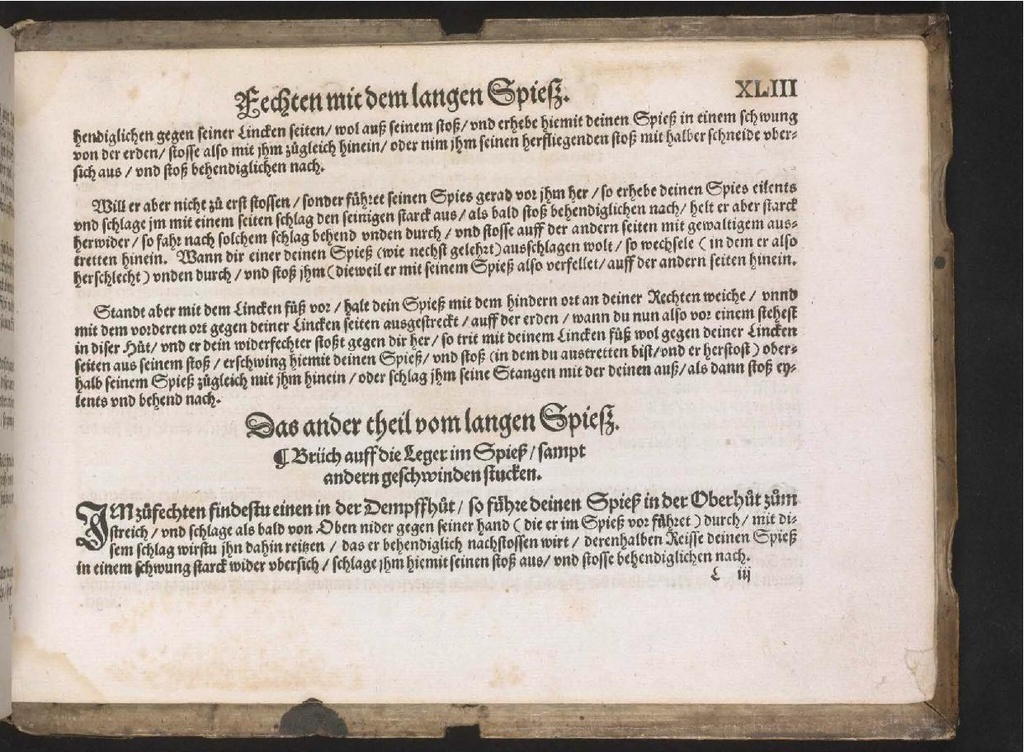 Fechten mit dem langen Spieß.
XLIII
hendiglichen gegen seiner Lincken seiten / wol auß seinem stoß / vnd erhebe hiemit deinen Spieß in einem schwung
von der erden / stosse also mit jhm zůgleich hinein / oder nim jhm seinen herfliegenden stoß mit halber schneide vber-
sich aus / vnd stoß behendiglichen nach.
Will er aber nicht zů erst stossen / sonder führet seinen Spies gerad vor jhm her / so erhebe deinen Spies eilents
vnd schlage jm mit einem seiten schlag den seinigen starck aus / als bald stoß behendiglichen nach / helt er aber starck
herwider / so fahr nach solchem schlag behend vnden durch / vnd stosse auff der andern seiten mit gewaltigem aus-
tretten hinein. Wann dir einer deinen Spieß (wie nechst gelehrt) ausschlagen wolt / so wechsele ( in dem er also
herschlecht ) vnden durch / vnd stoß jhm ( dieweil er mit seinem Spieß also verfellet / auff der andern seiten hinein.
Standt aber mit dem Lincken fůß vor / halt dein Spieß mit dem hindern ort an deiner Rechten weiche / vnnd
mit dem vorderen ort gegen deiner Lincken seiten ausgestreckt / auff der erden / wann du nun also vor einem stehest
in diser Hůt / vnd er dein widerfechter stoßt gegen dir her / so trit mit deinem Lincken fůß wol gegen deiner Lincken
seiten aus seinem stoß / erschwing hiemit deinen Spieß / vnd stoß (in dem du austretten bist / vnd er herstost ) ober-
halb seinem Spieß zůgleich mit jhm hinein / oder schlag jhm seine Stangen mit der deinen auß / als dann stoß ey-
lents vnd behend nach.
Das ander theil vom langen Spieß.
¶ Brüch auff die Leger im Spieß / sampt
andern geschwinden stucken.
IM zůfechten findestu einen in der Dempffhůt / so führe deinen Spieß in der Oberhůt zům
streich / vnd schlage als bald von Oben nider gegen seiner hand ( die er im Spieß vor führet ) durch / mit di-
sem schlag wirstu jhn dahin reitzen / das er behendiglich nachstossen wirt / derenhalben Reisse deinen Spieß
in einem schwung starck wider vbersich / schlage jhm hiemit seinen stoß aus / vnd stosse behendiglichen nach.
L iij